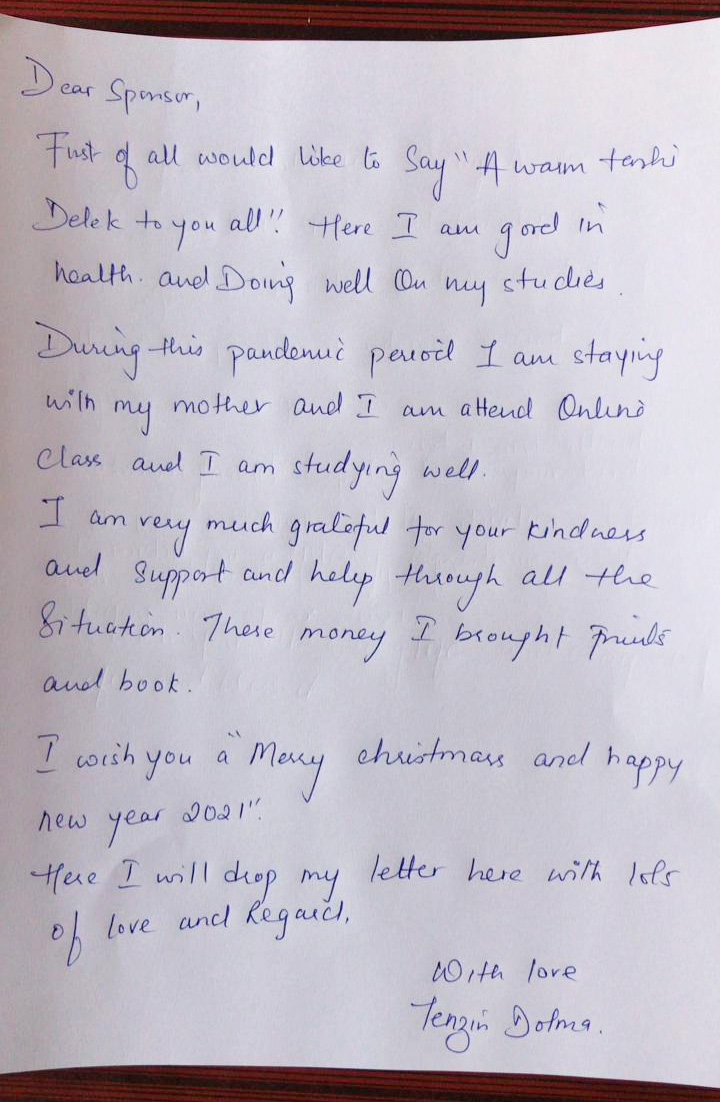 Dear Sponsor,
First of all would like to Say "A warm tashi
Delek to you all". Here I am good in
health. and Doing well On my studies.
During this pandemic period I am staying
with my mother and I am attend Online
Class and I am studying well.
I am very much grateful for your kindness
and support and help through all the
Situation. These money I brought Fruits
and book.
I wish you a "Merry christmass and happy
new year 2021".
Here I will drop my letter here with lots
of love and Regard,
With love
Tenzin Dolma.